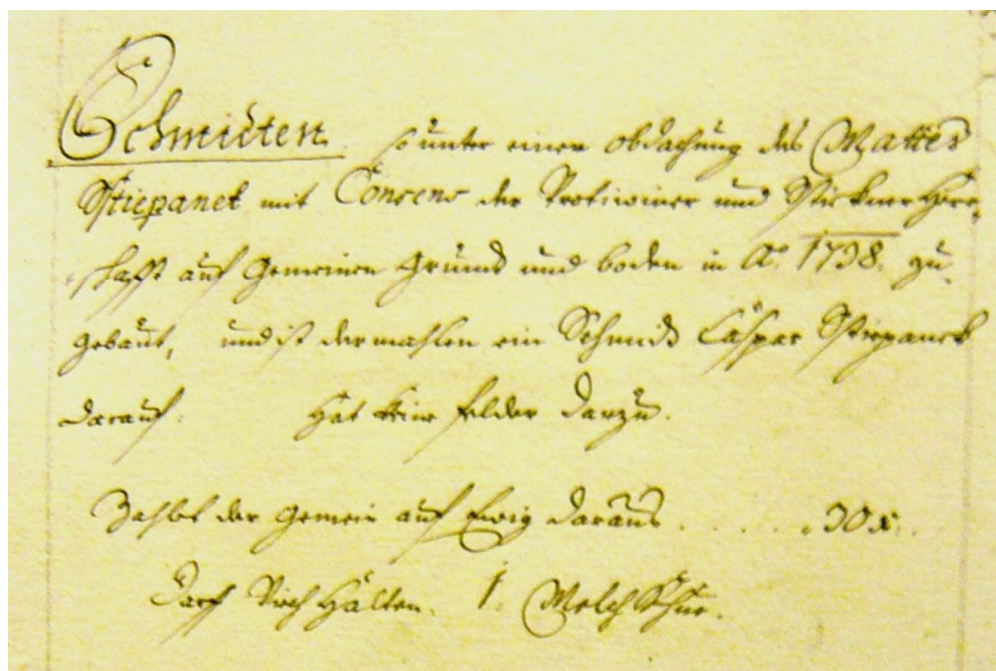 Schmitten. so unter einer obdachung des Mattes
Stiepanek mit Consens der Protiwiner und Stiekner Herr-
schafft auf Gemeinen Grund und boden in Aō. 1738. zu
gebaut, und ist dermahlen ein Schmidt Caspar Stiepanek
darauf. Hat keine felder darzu.
Zahlet der Gemein auf Ewig daraus ..... 30 x.
Darf Vieh Halten. 1. Melch Khue.